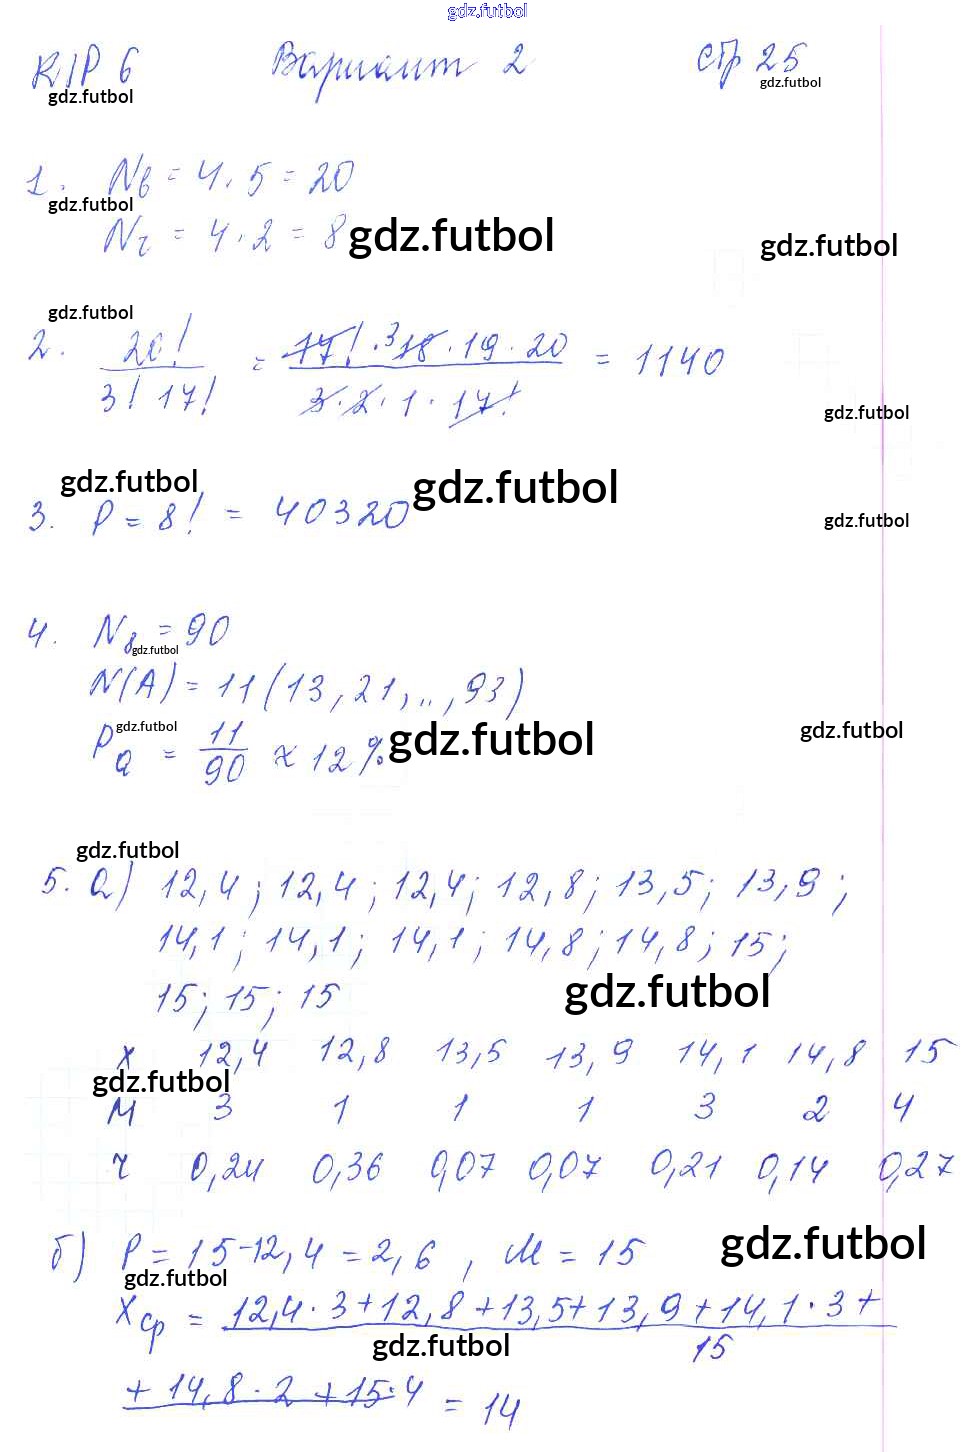 gdz.futbol
К/Р 6 Вариант 2 стр 25
gdz.futbol gdz.futbol
1. Nв = 4 . 5 = 20
gdz.futbol
Nг = 4 . 2 = 8 gdz.futbol gdz.futbol
gdz.futbol
2. 20! / 3! 17! = 17! . 3 18 . 19 . 20 / 3 . 2 . 1 . 17! = 1140
gdz.futbol
gdz.futbol gdz.futbol
3. P = 8! = 40320
gdz.futbol
4. Nв = 90
gdz.futbol
N(A) = 11 (13, 21, .., 93)
gdz.futbol gdz.futbol gdz.futbol
Pa = 11/90 ≈ 12 %
gdz.futbol
5. а) 12,4 ; 12,4 ; 12,4 ; 12,8 ; 13,5 ; 13,9 ;
14,1 ; 14,1 ; 14,1 ; 14,8 ; 14,8 ; 15 ;
15 ; 15 ; 15 gdz.futbol
x 12,4 12,8 13,5 13,9 14,1 14,8 15
gdz.futbol
M 3 1 1 1 3 2 4
r 0,24 0,36 0,07 0,07 0,21 0,14 0,27
б) P = 15-12,4 = 2,6 , M = 15 gdz.futbol
gdz.futbol
Xср = 12,4 . 3 + 12,8 + 13,5 + 13,9 + 14,1 . 3 +
gdz.futbol 15
+ 14,8 . 2 + 15 . 4 = 14